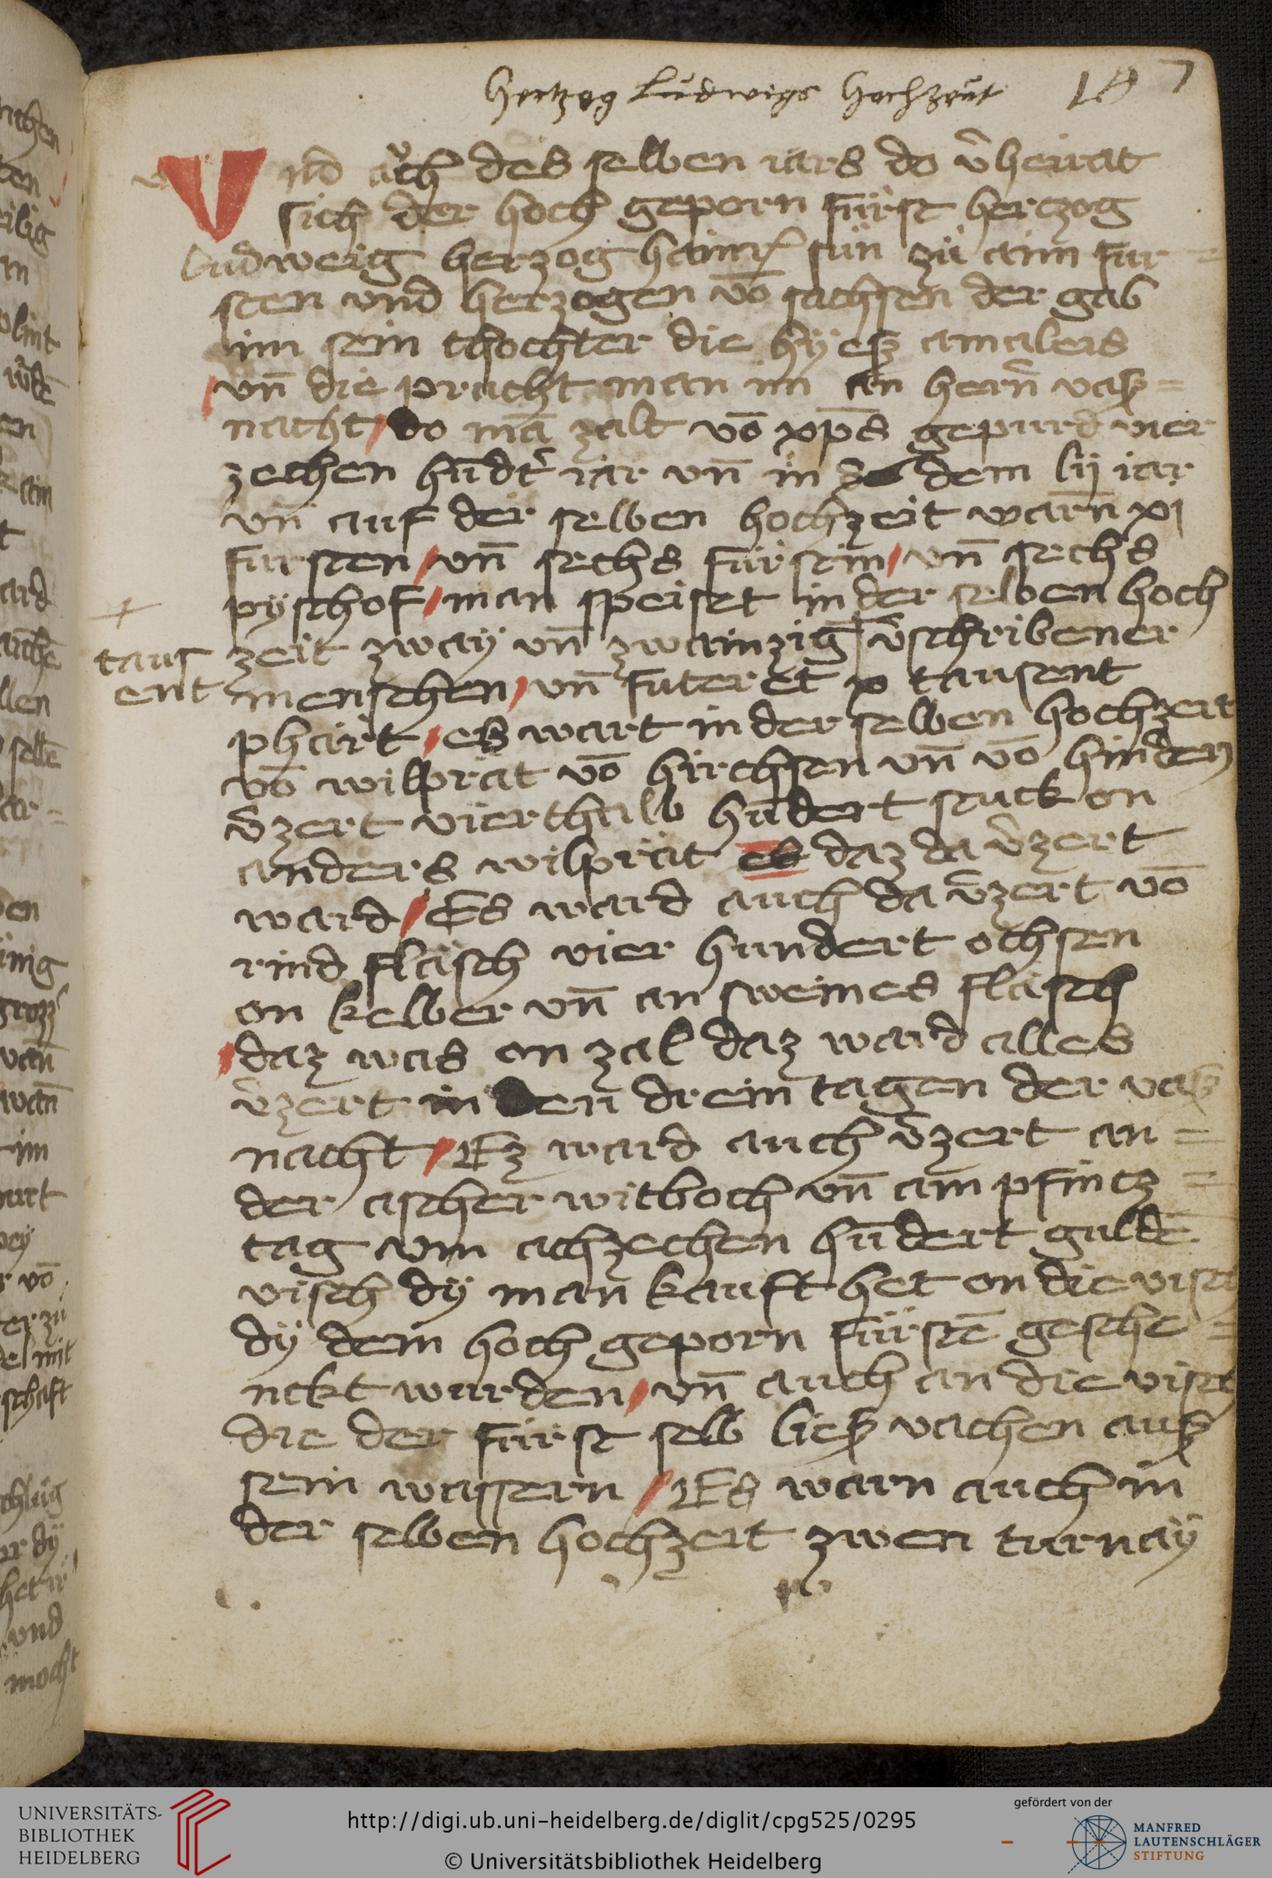 Hertzog Ludwigs Hochzeut
Vnd aůch des selben iars do v̄heirat
sich der hoch geporn fürst herczog
Ludweig herzog hainr̄ sün zü aim für=
sten vnd herzogen vō sachssen der gab
im sein thochter die hÿeß amaleis
vn̄ die pracht man im an hern̄ vaß=
nacht / do mā zalt vō xp̄s gepurd vier
zechen hūdt̄ iar vn̄ in dem lij iar
vn̄ auf der selben hochzeit warn̄ xj
fürsten / vn̄ sechs fürstin / vn̄ sechs
pÿschof / man speiset in der selben hoch
zeit zwaÿ vn̄ zwainzig v̄schribener
taus
ent
menschen / vn̄ füteret x tausent
phärt / es wart in der selben hochzeit
vō wilprät vō hirchssen vn̄ vō hinden
v̄zert vierthalb hūdert stuck on
anders wilprät es daz da v̄zert
ward / Es ward auch da v̄zert vō
rind fläisch vier hundert ochsen
on kelber vn̄ an sweines fläisch
/ daz was on zal daz ward alles
v̄zert in den drein tagen der vaß
nacht / Ez ward auch v̄zert an=
der ascher witboch vn̄ am pfincz=
tag vm achzechen hūdert guldē
visch dÿ man kauft het on die visch
dÿ dem hoch geporn fürstē gesche=
nckt wurden / vn̄ auch an die visch
die der fürst selb ließ vachen auß
sein wassern / Es warn auch in
der selben hochzeit zwen turnaÿ
UNIVERSITÄTS-
BIBLIOTHEK
HEIDELBERG
http://digi.ub.uni-heidelberg.de/diglit/cpg525/0295
© Universitätsbibliothek Heidelberg
gefördert von der
MANFRED
LAUTENSCHLÄGER
STIFTUNG